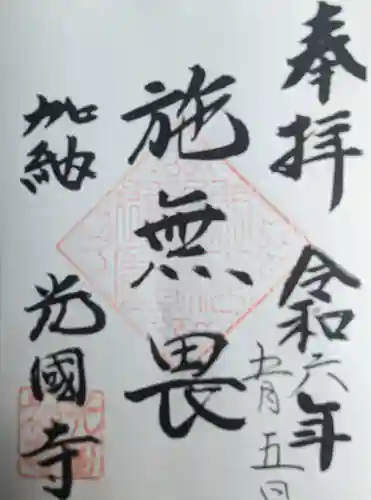 奉拝
令和六年
九月五日
施無畏
加納
光國寺